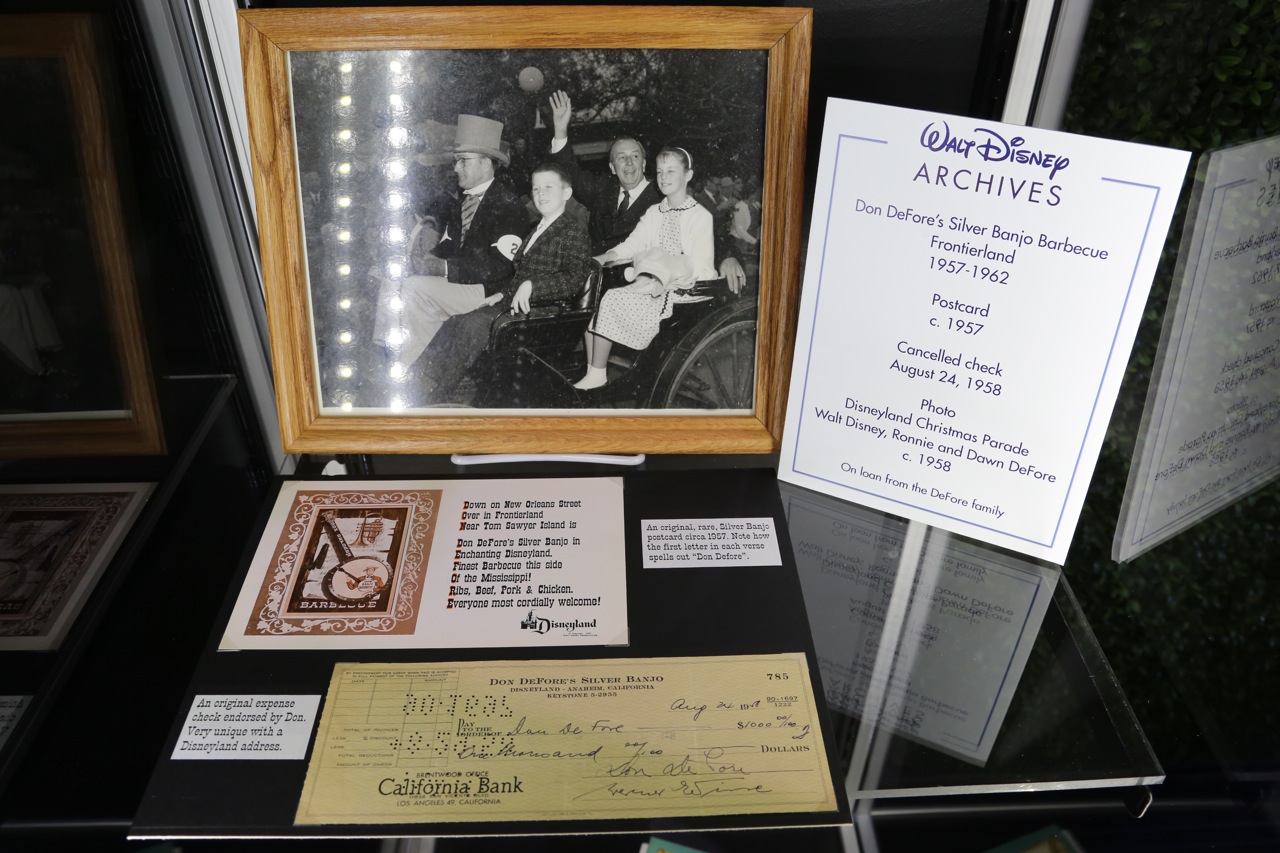 WALT DISNEY
ARCHIVES
Don DeFore's Silver Banjo Barbecue
Frontierland
1957-1962
Postcard
c. 1957
Cancelled check
August 24, 1958
Photo
Disneyland Christmas Parade
Walt Disney, Ronnie and Dawn DeFore
c. 1958
On loan from the DeFore family
2
BARBECUE
Down on New Orleans Street
Over in Frontierland
Near Tom Sawyer Island is
Don DeFore's Silver Banjo in
Enchanting Disneyland.
Finest Barbecue this side
Of the Mississippi!
Ribs, Beef, Pork & Chicken.
Everyone most cordially welcome!
Disneyland
An original, rare, Silver Banjo
postcard circa 1957. Note how
the first letter in each verse
spells out "Don Defore".
An original expense
check endorsed by Don.
Very unique with a
Disneyland address.
DON DEFORE'S SILVER BANJO
DISNEYLAND - ANAHEIM, CALIFORNIA
KEYSTONE 5-2955
785
Aug 24 1958
90-1697
1222
PAY
TO THE
ORDER OF Don De Fore $1000 00/100
One thousand 00/100 DOLLARS
BRENTWOOD OFFICE
California Bank
LOS ANGELES 49, CALIFORNIA
Don De Fore